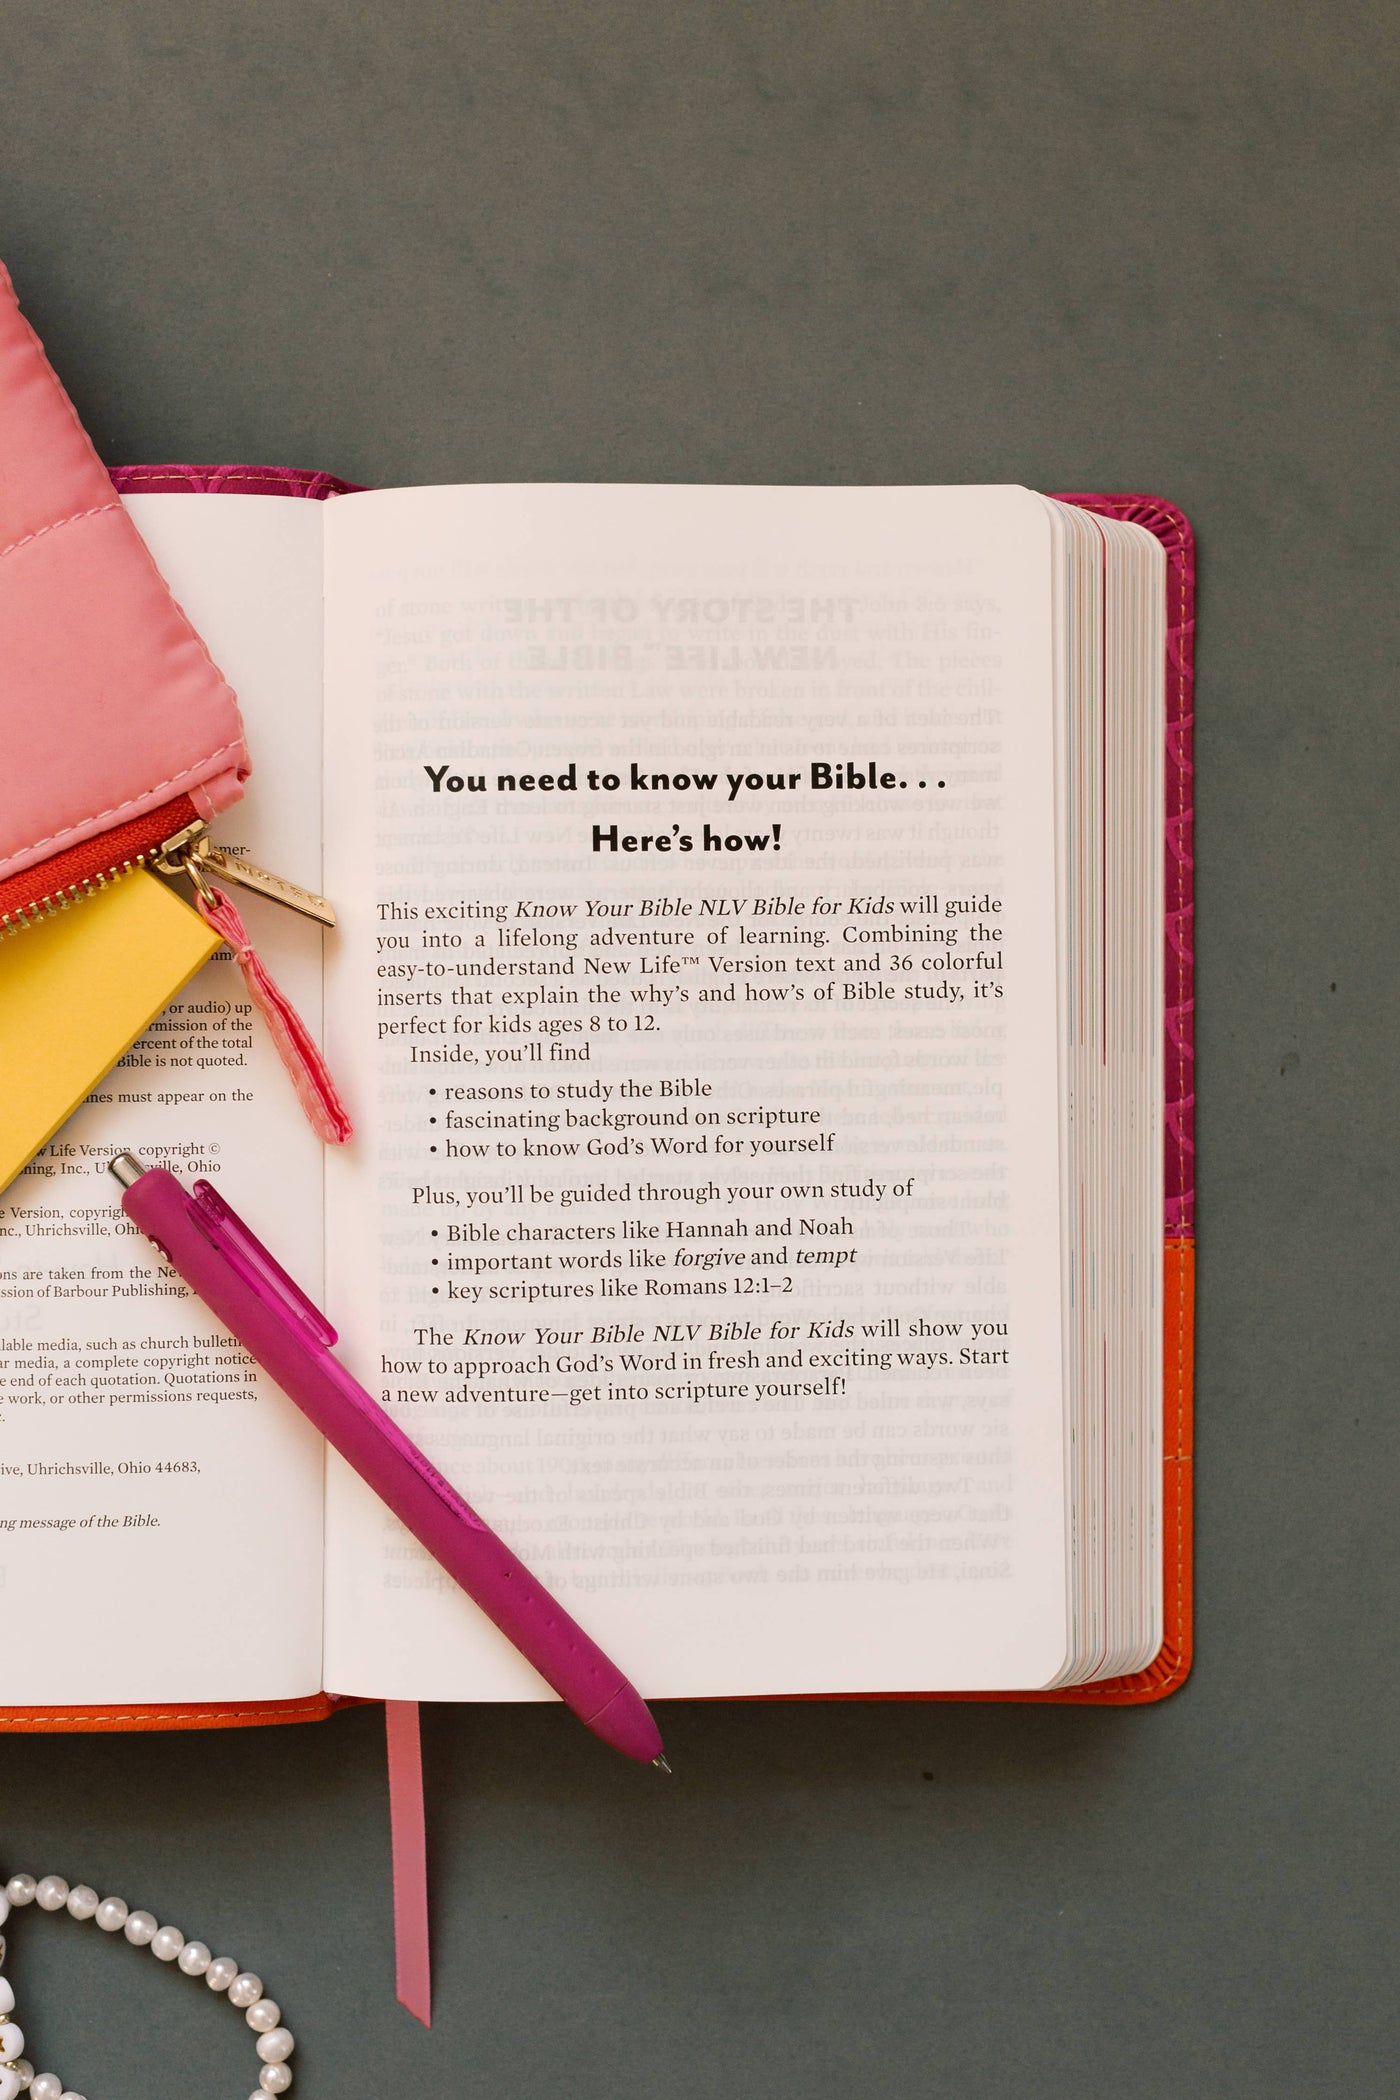 mer-
, or audio) up
rmission of the
ercent of the total
Bible is not quoted.
must appear on the
Life Version, copyright ©
Inc.,
ville, Ohio
Version, copyrig
nc., Uhrichsville, Ohi
ons are taken from the Ne
ssion of Barbour Publishing,
lable media, such as church bulletin
ar media, a complete copyright notice
e end of each quotation. Quotations in
e work, or other permissions requests,
ive, Uhrichsville, Ohio 44683,
ng message of the Bible.
NOTED
You need to know your Bible. . .
Here's how!
This exciting Know Your Bible NLV Bible for Kids will guide
you into a lifelong adventure of learning. Combining the
easy-to-understand New Life™ Version text and 36 colorful
inserts that explain the why's and how's of Bible study, it's
perfect for kids ages 8 to 12.
Inside, you'll find
• reasons to study the Bible
• fascinating background on scripture
• how to know God's Word for yourself
Plus, you'll be guided through your own study of
• Bible characters like Hannah and Noah
• important words like forgive and tempt
• key scriptures like Romans 12:1–2
The Know Your Bible NLV Bible for Kids will show you
how to approach God's Word in fresh and exciting ways. Start
a new adventure—get into scripture yourself!